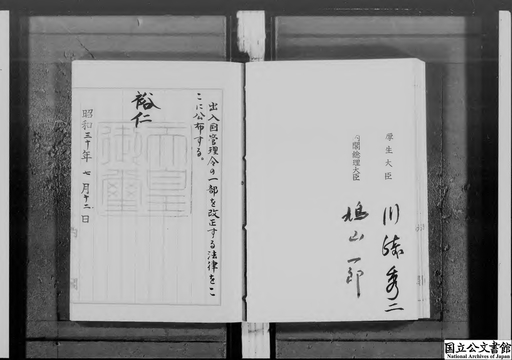 出入国管理令の一部を改正する法律をこ
こに公布する。
裕仁
天皇
御璽
昭和三十年七月十二日
内閣
厚生大臣
川崎秀二
内閣総理大臣
鳩山一郎
国立公文書館
National Archives of Japan